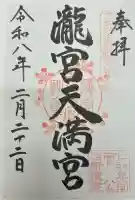 奉拝
瀧宮天満宮
令和八年二月二十二日